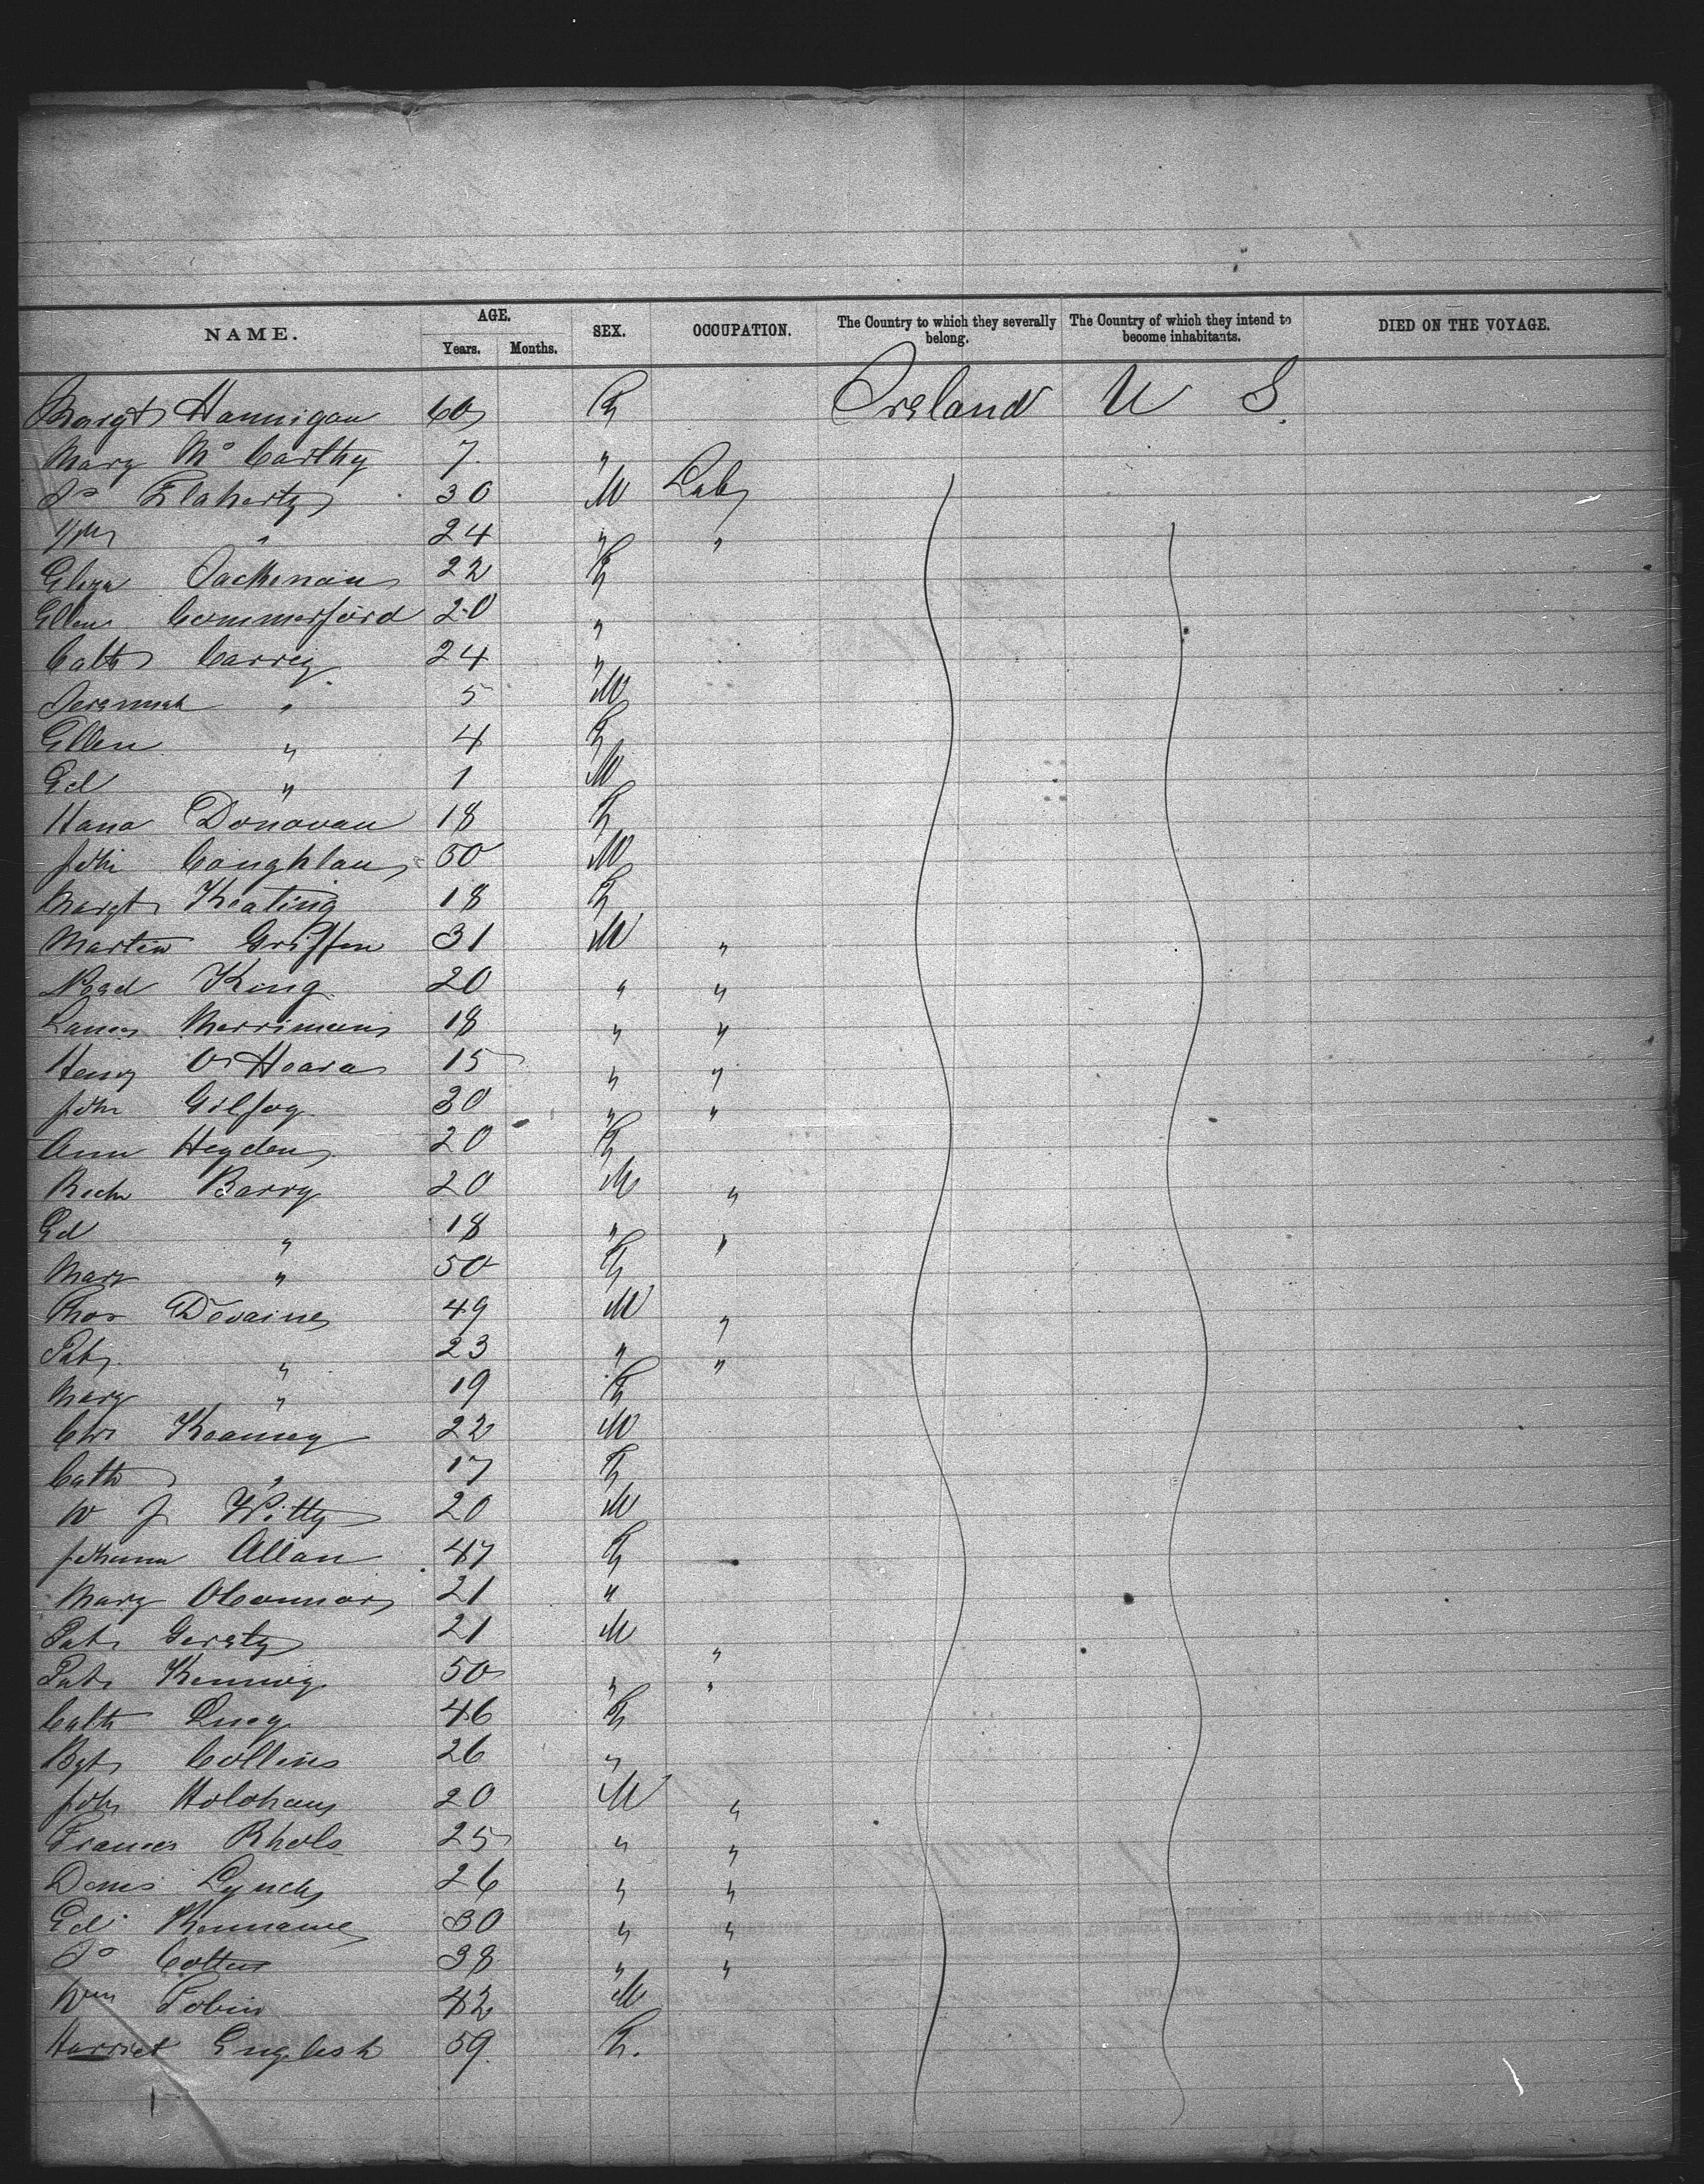 NAME. AGE. Years. Months. SEX. OCCUPATION. The Country to which they severally belong. The Country of which they intend to become inhabitants. DIED ON THE VOYAGE.
Margt Hannigan 60 F Ireland U S.
Mary McCarthy 7 "
Jo Flaherty 30 M Lab
Wm " 24 " "
Eliza 22 F
Ellen Commerford 20 "
Cath Carrig 24 "
Jeremiah " 5 M
Ellen " 4 F
Ed " 1 M
Hana Donovan 18 F
John Coughlan 50 M
Margt Keating 18 F
Martin Griffin 31 M "
King 20 " "
Merriman 18 " "
Henry O'Heara 15 " "
John Gilfoy 30 " "
Ann Heyden 20 F
Richd Barry 20 M "
Ed " 18 " "
Mary " 50 F
Thos Devaine 49 M "
Pat " 23 " "
Mary " 19 F
Chr Kearney 22 M
Cath " 17 F
W J Witty 20 M
Johanna Allan 47 F
Mary OConnor 21 "
Pat Geraty 21 M "
Pat 50 " "
Cath Lucy 46 F
Bgt Collins 26 "
John Holohan 20 M "
Frances 25 " "
Denis Lynch 26 " "
Ed Kennane 30 " "
Jo Cotter 38 " "
Wm Tobin 42 M
Harriet English 59 F.